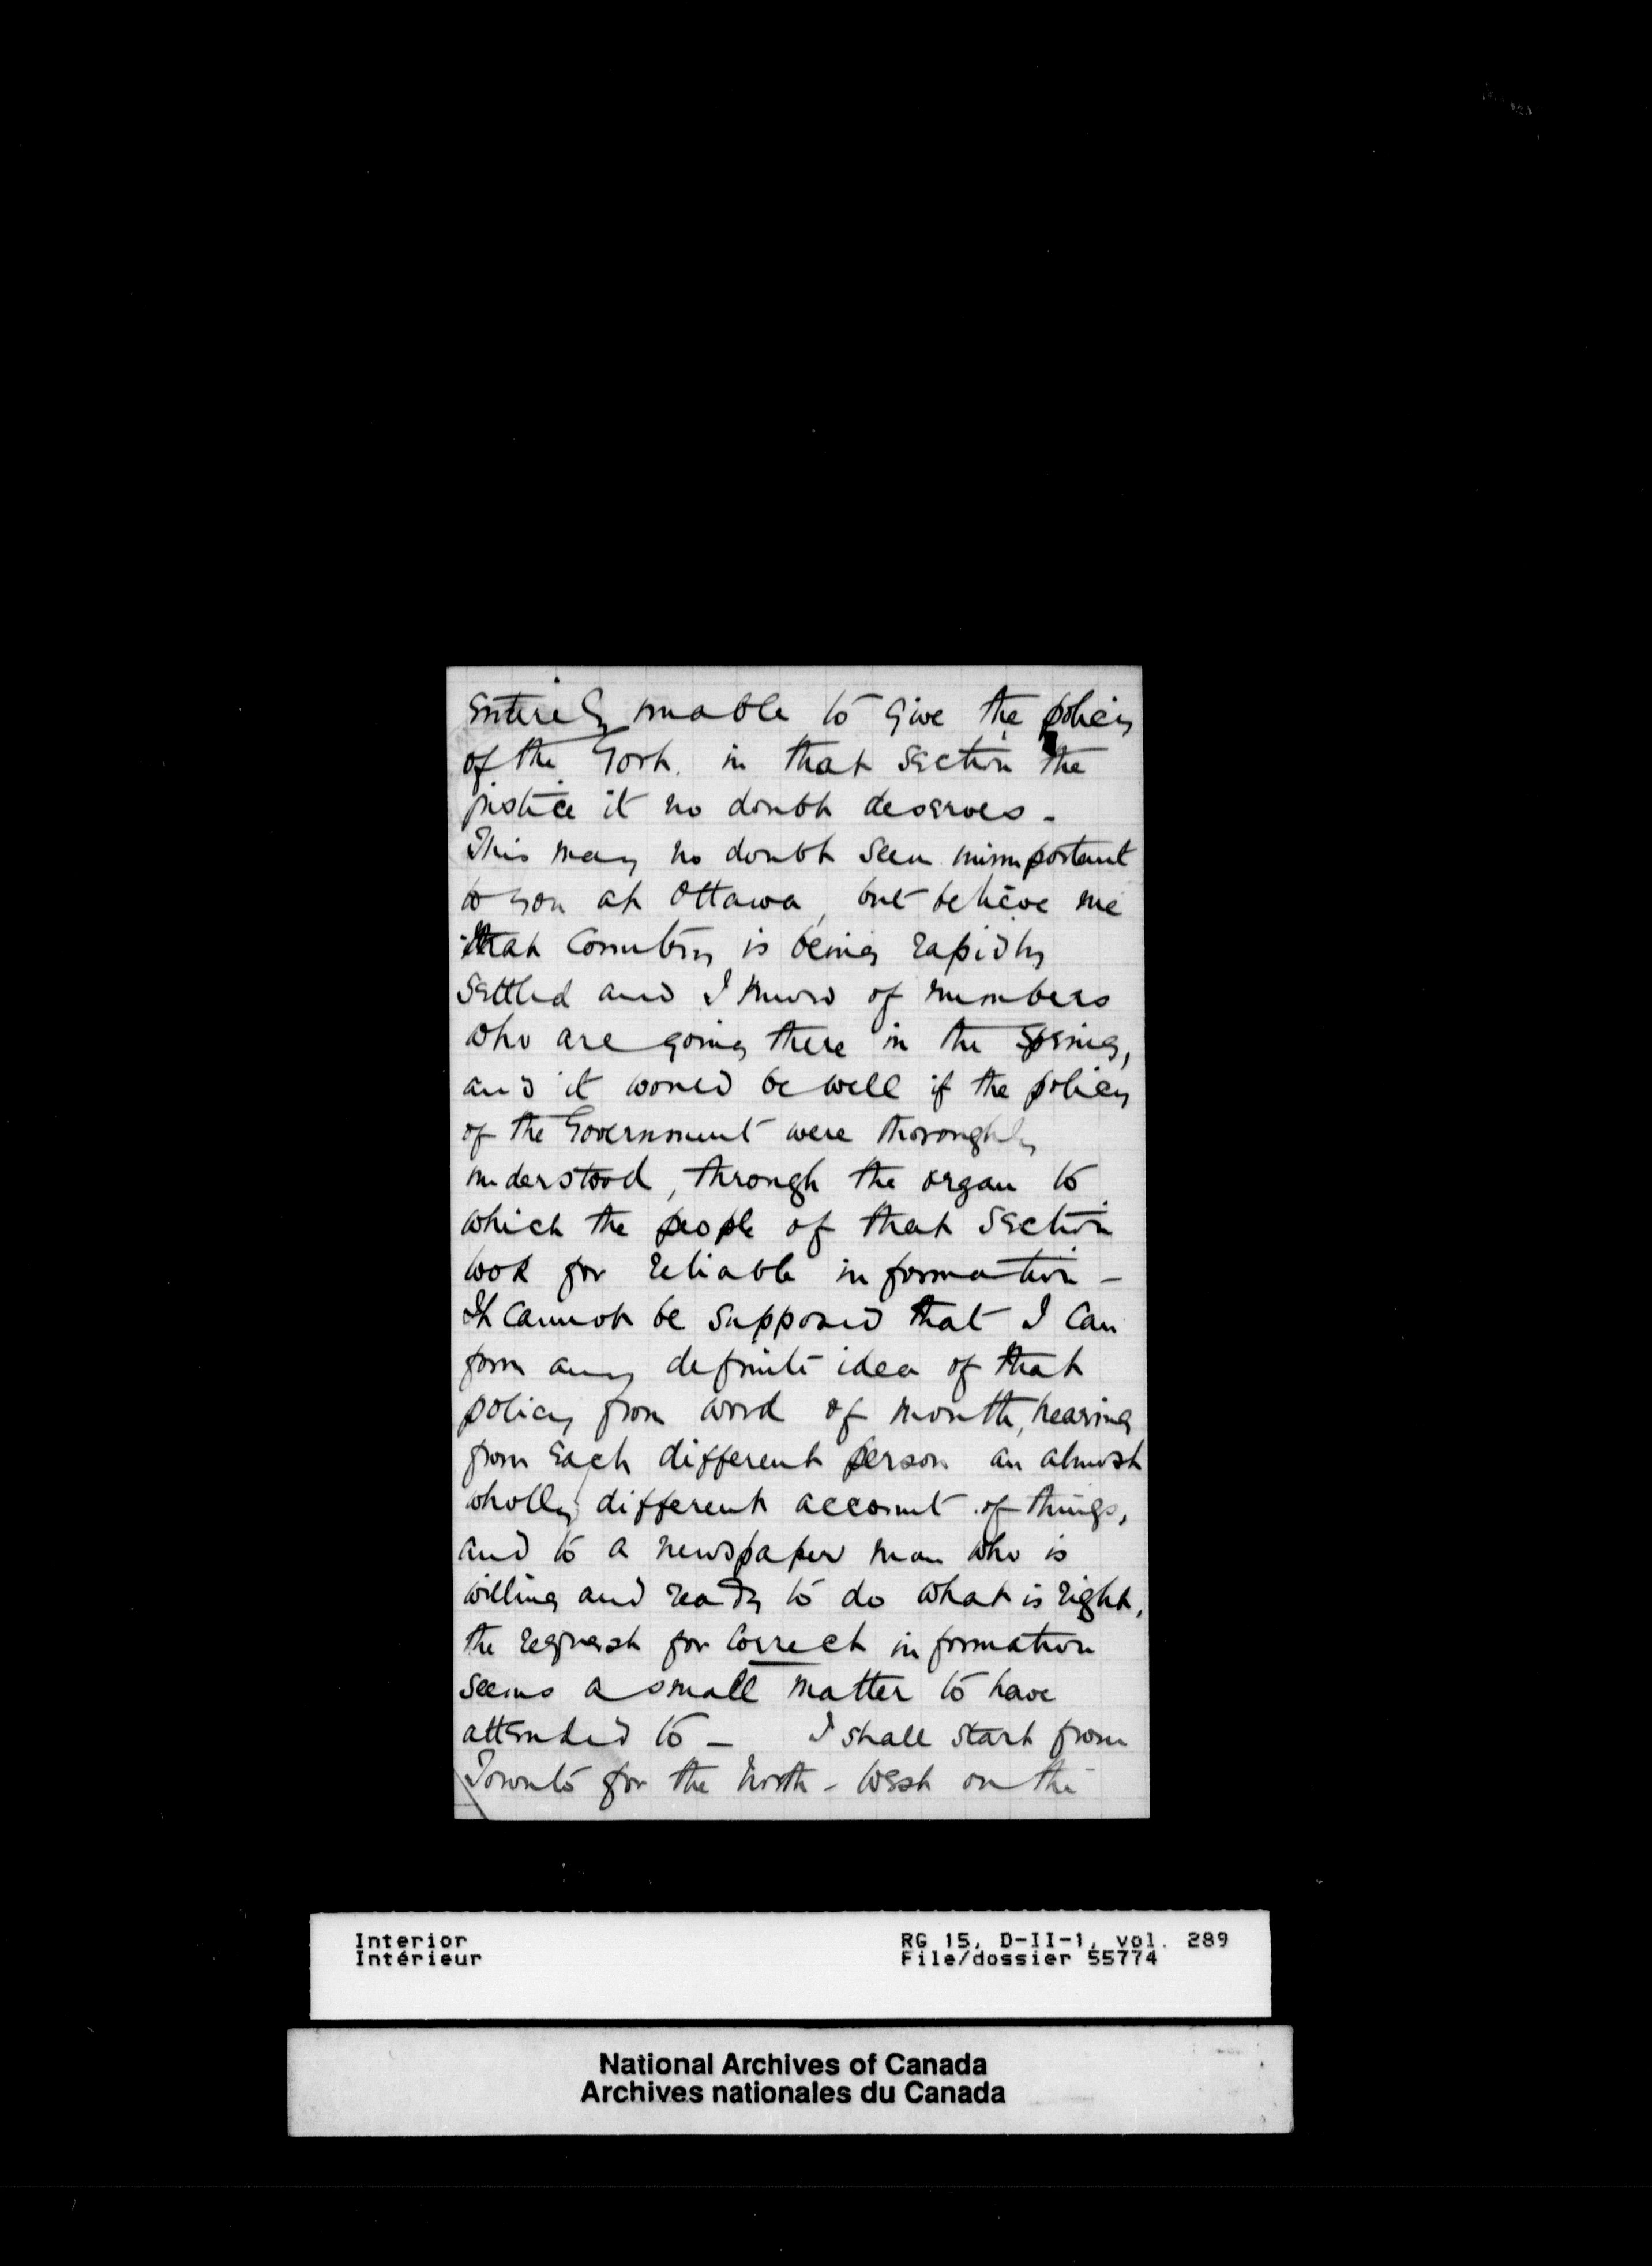 entirely unable to give the policy
of the Govt. in that section the
justice it no doubt deserves -
This may no doubt seem unimportant
to you at Ottawa, but believe me
that country is being rapidly
settled and I know of numbers
who are going there in the spring,
and it would be well if the policy
of the Government were thoroughly
understood, through the organ to
which the people of that section
look for reliable information -
It cannot be supposed that I can
form any definite idea of that
policy from word of mouth, hearing
from each different person an almost
wholly different account of things,
and to a newspaper man who is
willing and ready to do what is right,
the request for correct information
seems a small matter to have
attended to - I shall start from
Toronto for the North-West on the
Interior
Intérieur
RG 15, D-II-1, vol. 289
File/dossier 55774
National Archives of Canada
Archives nationales du Canada